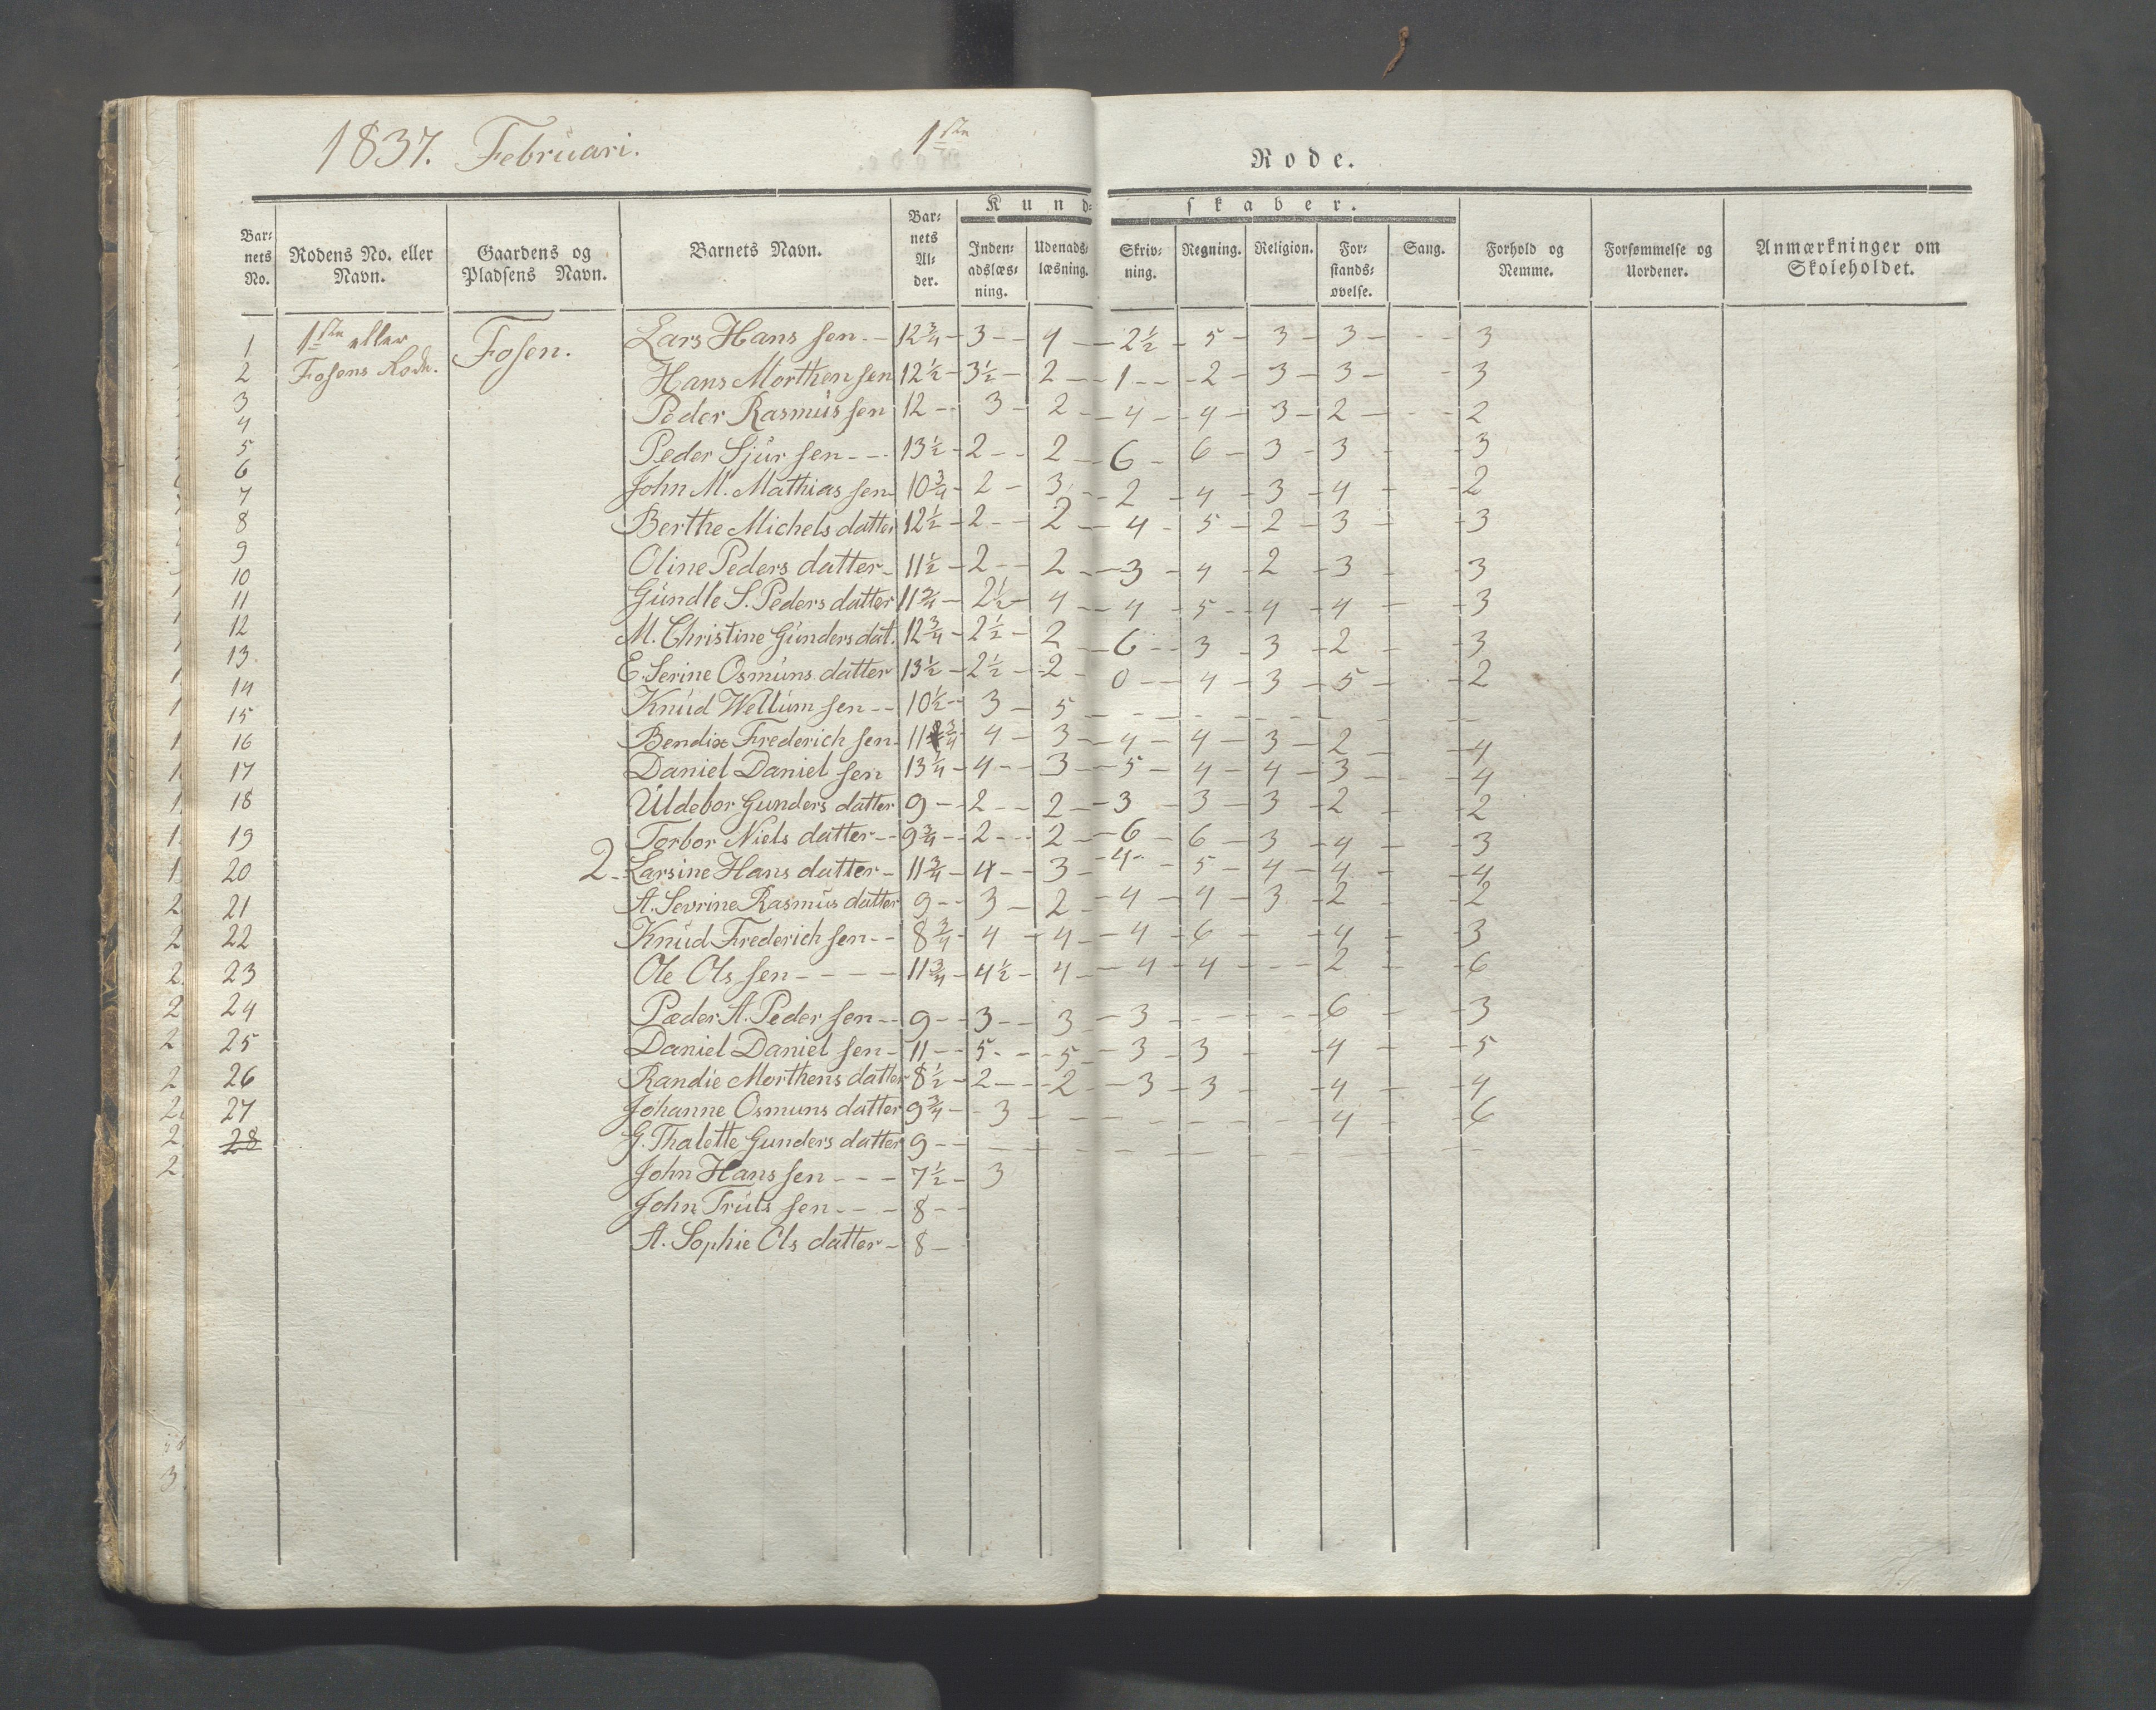 1837. Februari. 1ste Rode.
Kund- skaber.
Barnets No. Rodens No. eller Navn. Gaardens og Pladsens Navn. Barnets Navn. Barnets Alder. Indenadslæsning. Udenadslæsning. Skrivning. Regning. Religion. Forstandsøvelse. Sang. Forhold og Nemme. Forsømmelse og Uordener. Anmærkninger om Skoleholdet.
1 1ste eller Fosen. Lars Hans sen - 12 3/4 - 3 - 4 - 2 1/2 - 5 - 3 - 3 - - 3
2 Fosens Rode. Hans Morthen sen 12 1/2 - 3 1/2 - 2 - 1 - 2 - 3 - 3 - - 3
3 Peder Rasmus sen 12 - 3 - 2 - 4 - 4 - 3 - 2 - - 2
4 Peder Sjur sen - 13 1/2 - 2 - 2 - 6 - 6 - 3 - 3 - 3
5 John M. Mathias sen 10 3/4 - 2 - 3 - 2 - 4 - 3 - 4 - 2
6 Berthe Michels datter 12 1/2 - 2 - 2 - 4 - 5 - 2 - 3 - 3
7 Oline Peders datter - 11 1/2 - 2 - 2 - 3 - 4 - 2 - 3 - 3
8 Gündle S. Peders datter 11 3/4 - 2 1/2 - 4 - 4 - 5 - 4 - 4 - 3
9 M. Christine Günders dat. 12 3/4 - 2 1/2 - 2 - 6 - 3 - 3 - 2 - 3
10 E. Serine Osmüns datter 13 1/2 - 2 1/2 - 2 - 0 - 4 - 3 - 5 - 2
11 Knüd Wellüm sen - 10 1/2 - 3 - 5 - - - - -
12 Bendix Frederich sen - 11 3/4 4 - 3 - 4 - 4 - 3 - 2 - 4
13 Daniel Daniel sen 13 1/4 - 4 - 3 - 5 - 4 - 4 - 3 - 4
14 Uldebor Gunders datter 9 - 2 - 2 - 3 - 3 - 3 - 2 - 2
15 Torbor Niels datter - 9 3/4 - 2 - 2 - 6 - 6 - 3 - 4 - 3
16 2 - Larsine Hans datter - 11 3/4 - 4 - 3 - 4 - 5 - 4 - 4 - 4
17 A. Sevrine Rasmus datter 9 - 3 - 2 - 4 - 4 - 3 - 2 - 2
18 Knüd Frederich sen - 8 3/4 - 4 - 4 - 4 - 6 - - 4 - 3
19 Ole Ols sen - - - 11 3/4 - 4 1/2 - 4 - 4 - 4 - - 2 - 6
20 Pæder A. Peder sen - 9 - 3 - 3 - 3 - - - 6 - 3
21 Daniel Daniel sen - 11 - 5 - 5 - 3 - 3 - 4 - 5
22 Randie Morthens datter 8 1/2 - 2 - 2 - 3 - 3 - 4 - 4
23 Johanne Osmuns datter 9 3/4 - 3 - - - - 4 - 6
24 G. Thalette Gunders datter 9 - - - - - -
25 John Hans sen - - - 7 1/2 - 3
26 John Truls sen - - 8 - -
27 A. Sophie Ols datter - 8 -
28